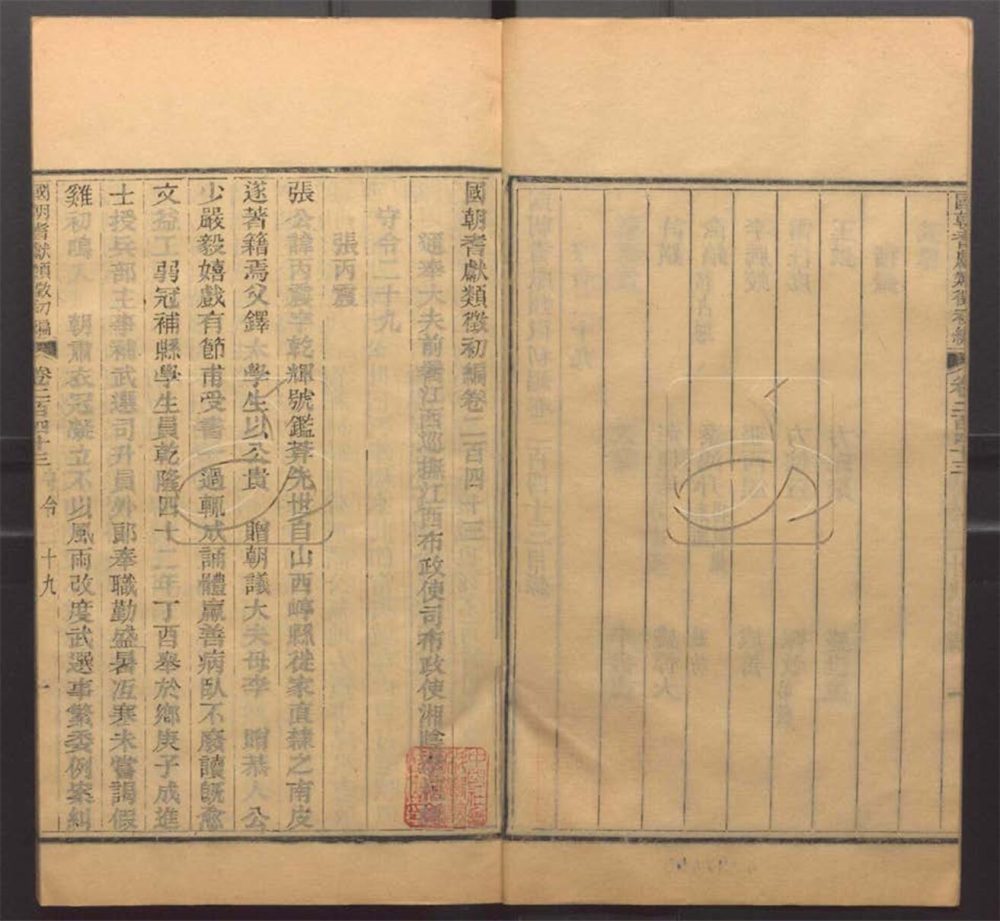 國朝耆獻類徵初編
卷二百四十三
國朝耆獻類徵初編卷二百四十三
通奉大夫前署江西巡撫江西布政使司布政使湘陰
守令二十九
張丙震
張公諱丙震字乾輝號鑑菴先世自山西崞縣徙家直隸之南皮
遂著籍焉父鐸太學生以公貴 贈朝議大夫母李 贈恭人公
少嚴毅嬉戲有節甫受書一過輒成誦體羸善病臥不廢讀既愈
文益工 弱冠補縣學生員乾隆四十二年丁酉舉於鄉庚子成進
士授兵部主事補武選司升員外郎奉職勤盛暑沍寒未嘗謁假
雞初鳴 朝肅衣冠凝立不以風雨改度武選事繁委例案糾
國朝耆獻類徵初編 卷二百四十三 守令 十九 一